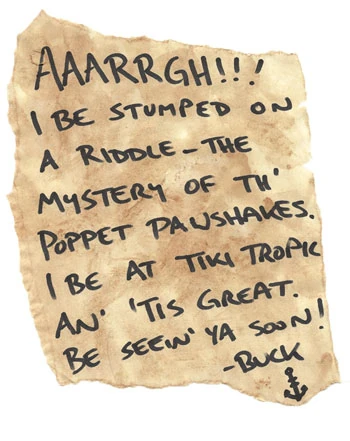 AAARRGH!!!
I BE STUMPED ON
A RIDDLE - THE
MYSTERY OF TH'
POPPET PAWSHAKES.
I BE AT TIKI TROPIC
AN' 'TIS GREAT.
BE SEEIN' YA SOON!
-BUCK